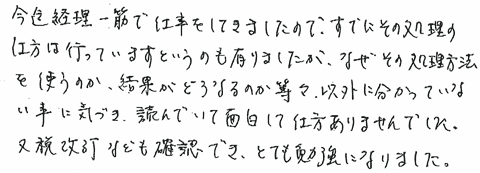 今迄経理一筋で仕事をしてきましたので、すでにその処理の
仕方は行っていますというのも有りましたが、なぜその処理方法
を使うのか、結果がどうなるのか等々、以外に分かっていな
い事に気づき、読んでいて面白くて仕方ありませんでした。
又税改訂なども確認でき、とても勉強になりました。